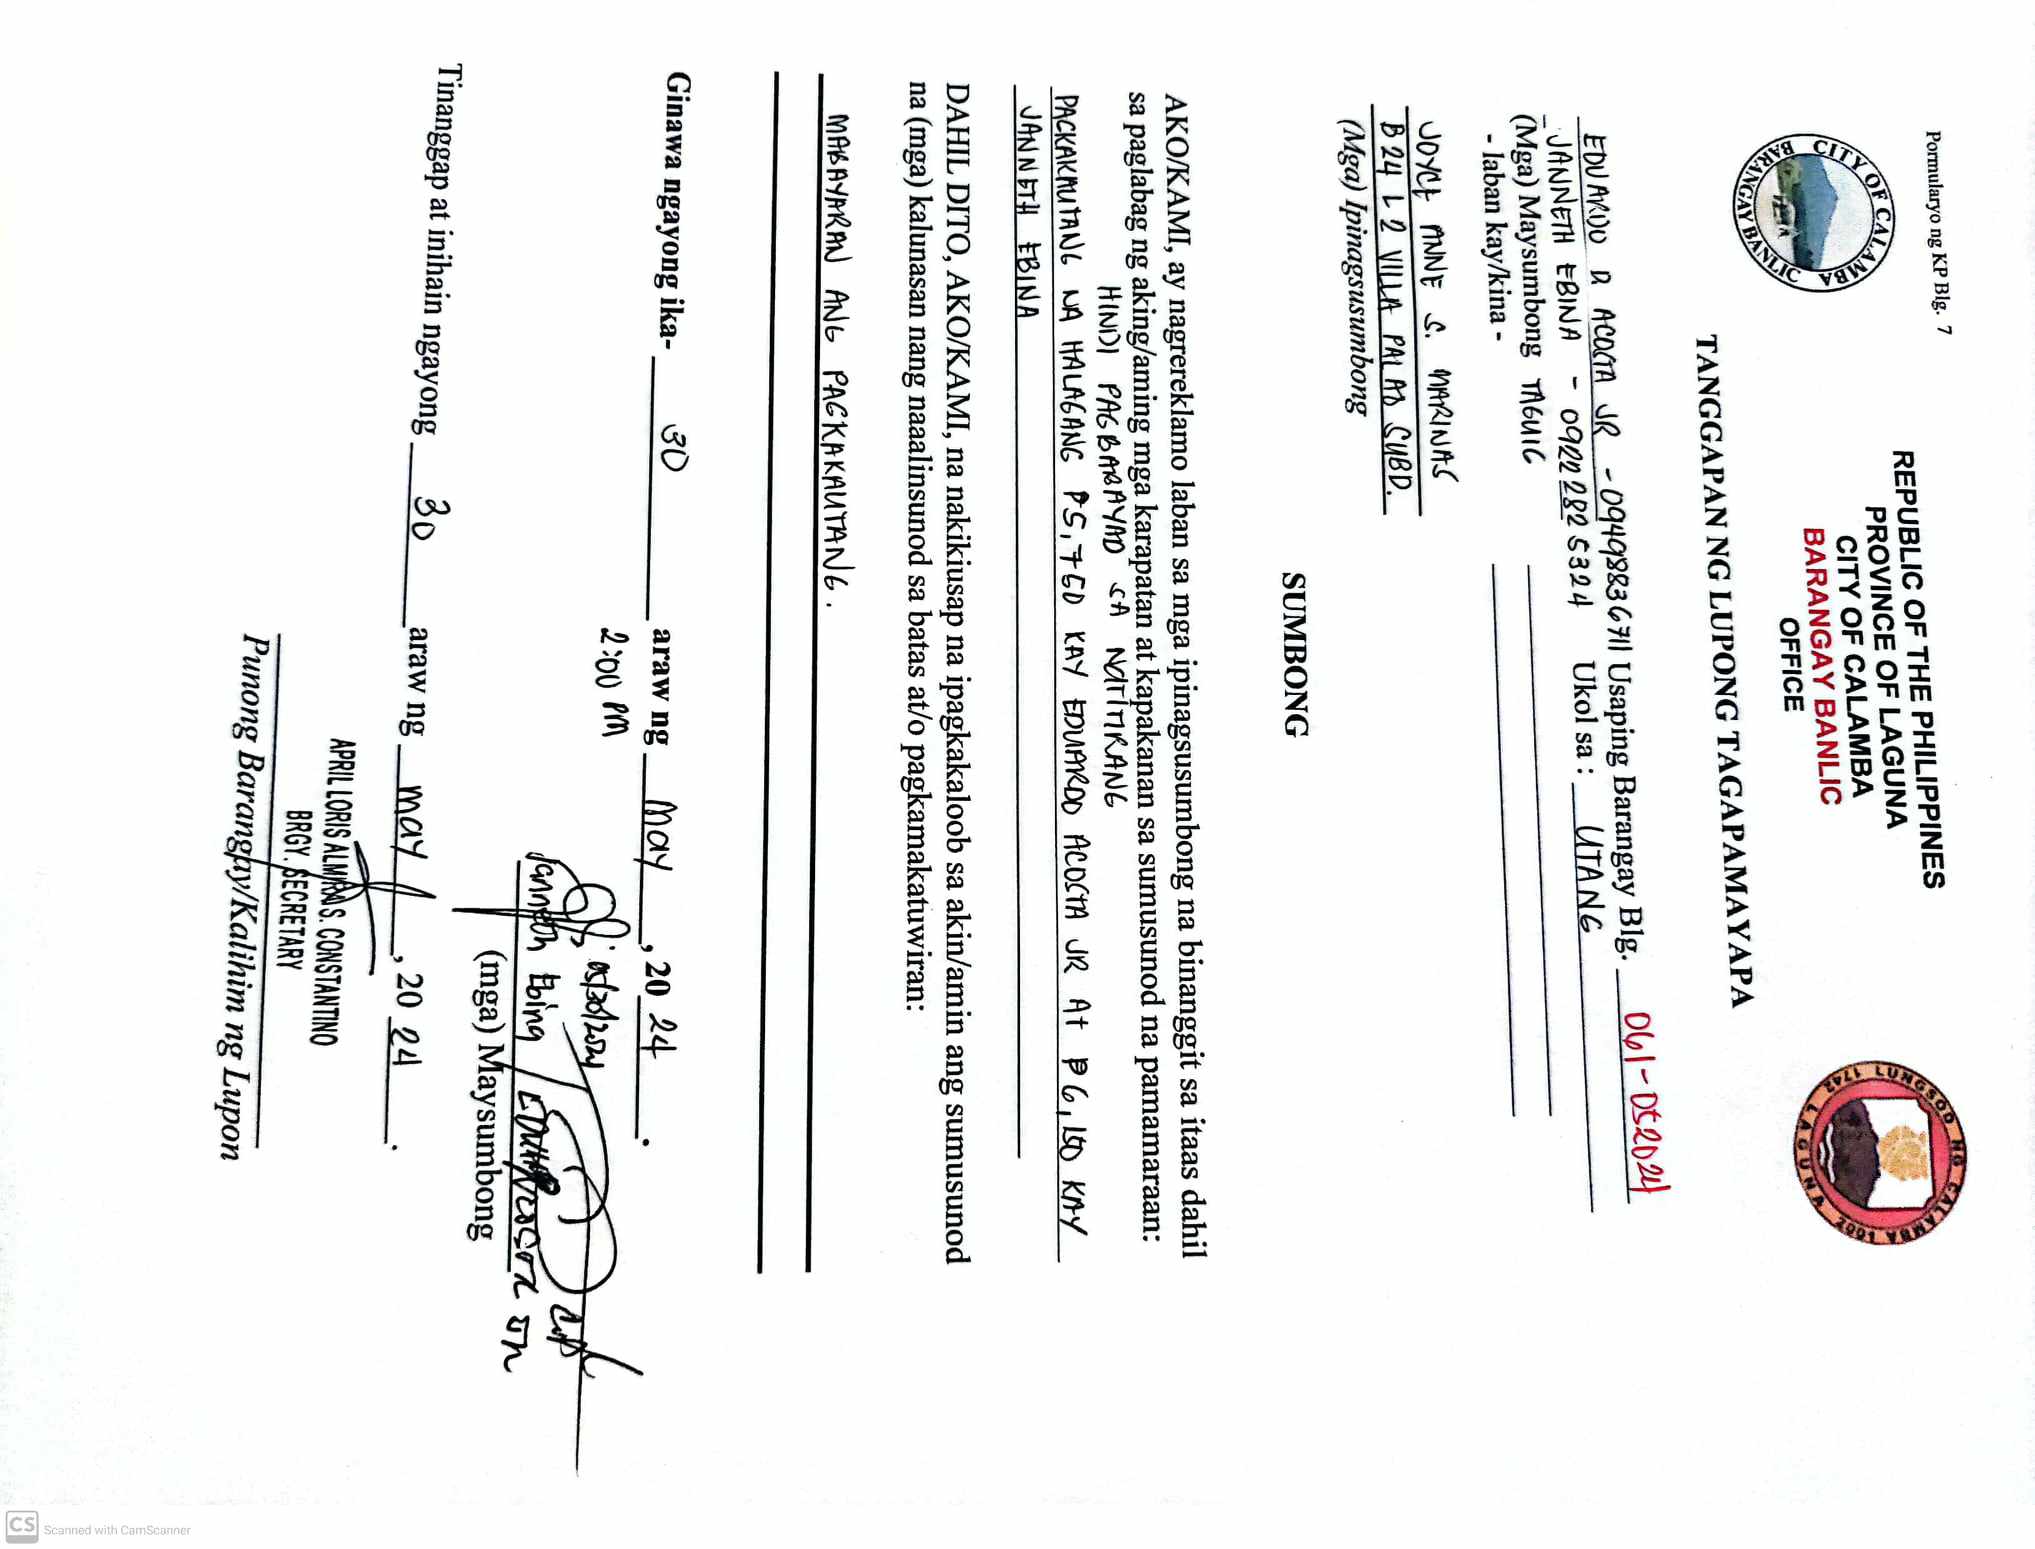 Pormularyo ng KP Blg. 7
REPUBLIC OF THE PHILIPPINES
PROVINCE OF LAGUNA
CITY OF CALAMBA
BARANGAY BANLIC
OFFICE
CITY OF CALAMBA
BARANGAY BANLIC
LUNGSOD NG CALAMBA
1742 LAGUNA 2001
TANGGAPAN NG LUPONG TAGAPAMAYAPA
EDUARDO D ACOSTA JR - 09498836711 Usaping Barangay Blg. 061-052024
JANNETH EBINA - 0922 282 5324 Ukol sa : UTANG
(Mga) Maysumbong TAGUIG
- laban kay/kina -
JOYCE ANNE S. MARINAS
B24 L2 VILLA PALAO SUBD.
(Mga) Ipinagsusumbong
SUMBONG
AKO/KAMI, ay nagrereklamo laban sa mga ipinagsusumbong na binanggit sa itaas dahil
sa paglabag ng aking/aming mga karapatan at kapakanan sa sumusunod na pamamaraan:
HINDI PAGBABAYAD SA NATITIRANG
PAGKAKAUTANG NA HALAGANG ₱5,760 KAY EDUARDO ACOSTA JR At ₱6,150 KAY
JANNETH EBINA
DAHIL DITO, AKO/KAMI, na nakikiusap na ipagkakaloob sa akin/amin ang sumusunod
na (mga) kalunasan nang naaalinsunod sa batas at/o pagkamakatuwiran:
MABAYARAN ANG PAGKAKAUTANG.
Ginawa ngayong ika- 30 araw ng May, 20 24.
2:00 PM
05/30/2024
Janneth Ebina / EDUARDO ACOSTA JR
(mga) Maysumbong
Tinanggap at inihain ngayong 30 araw ng may, 20 24.
APRIL LORIS ALMIRA S. CONSTANTINO
BRGY. SECRETARY
Punong Barangay/Kalihim ng Lupon
CS Scanned with CamScanner